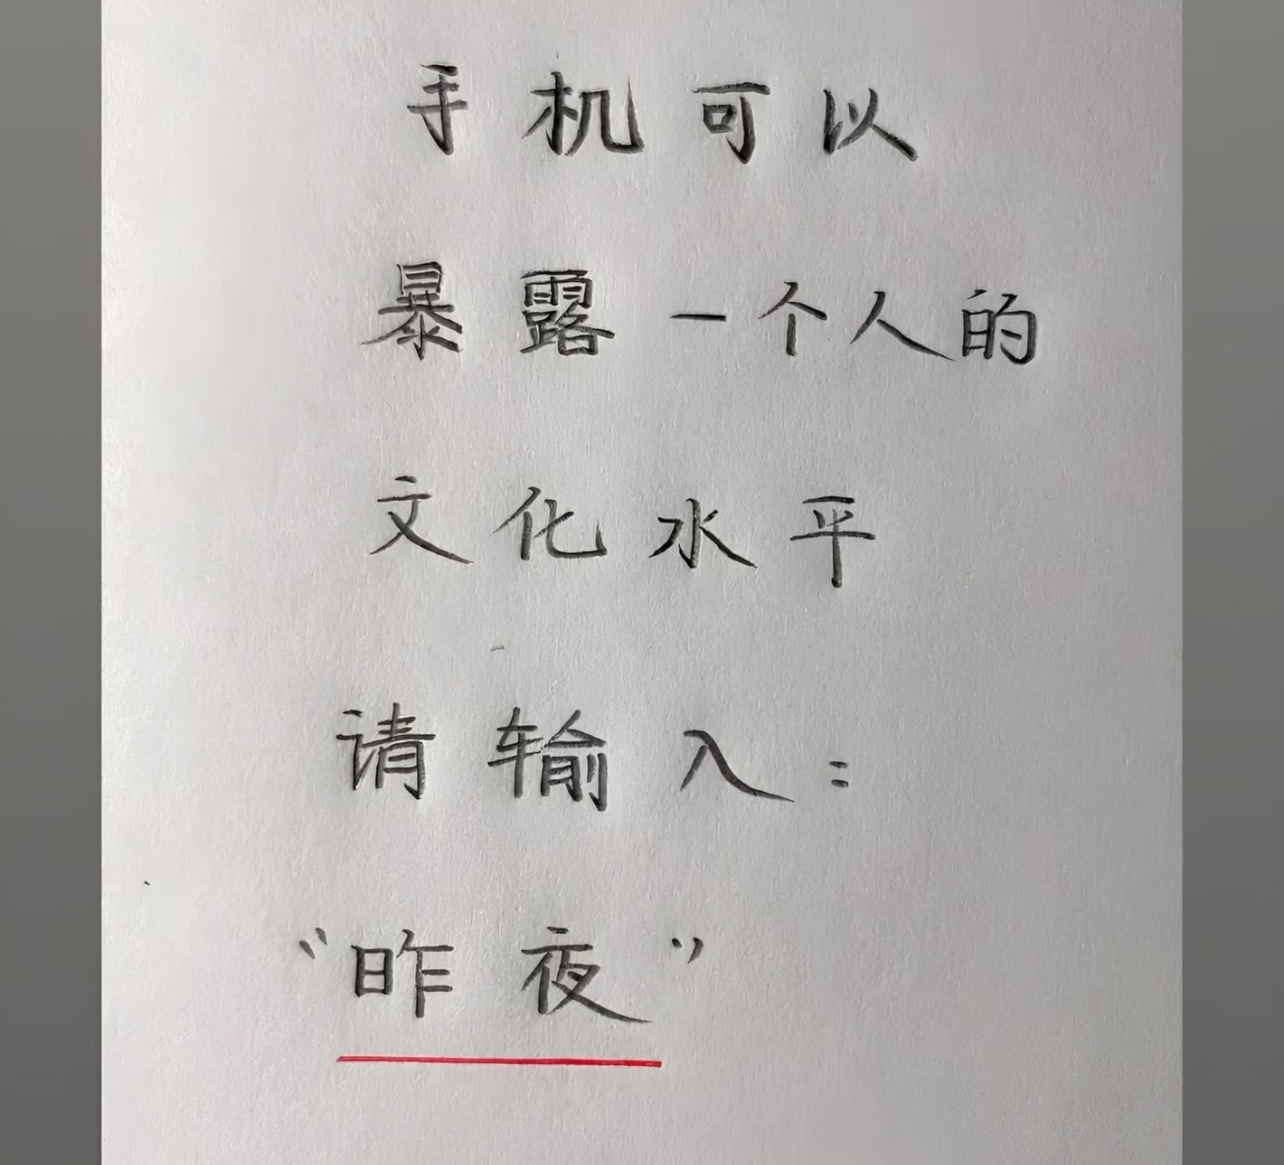 手机可以
暴露一个人的
文化水平
请输入：
“昨夜”